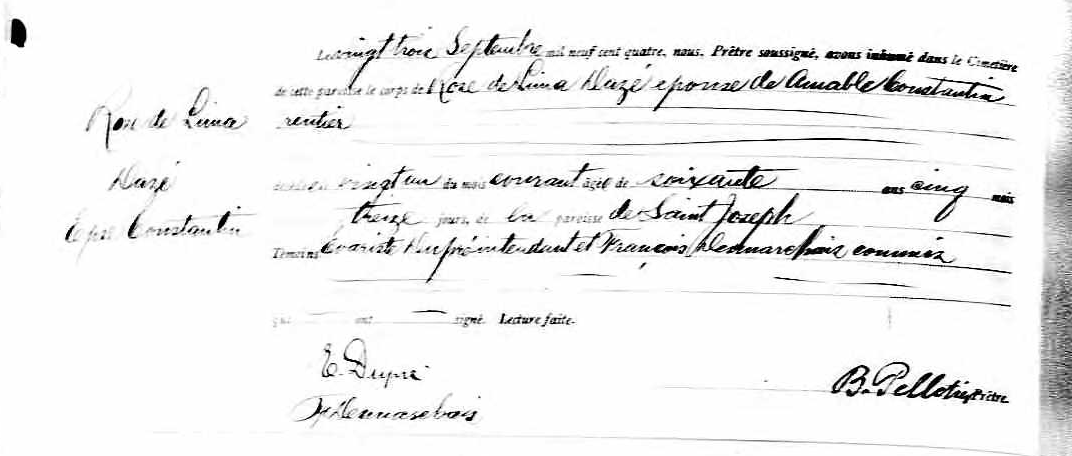 Le vingt trois Septembre mil neuf cent quatre, nous, Prêtre soussigné, avons inhumé dans le Cimetière
de cette paroisse le corps de Rose de Lima Dazé epouse de Amable Constantin
rentier
Rose de Lima
Dazé
Epse Constantin
décédée vingt un du mois courant agée de soixante ans cinq mois
treize jours, de la paroisse de Saint Joseph
Témoins Evariste Dupré intendant et François Desmarchais commis
qui ont signé. Lecture faite.
E. Dupré
F Desmarchais
B. Pelletier Prêtre